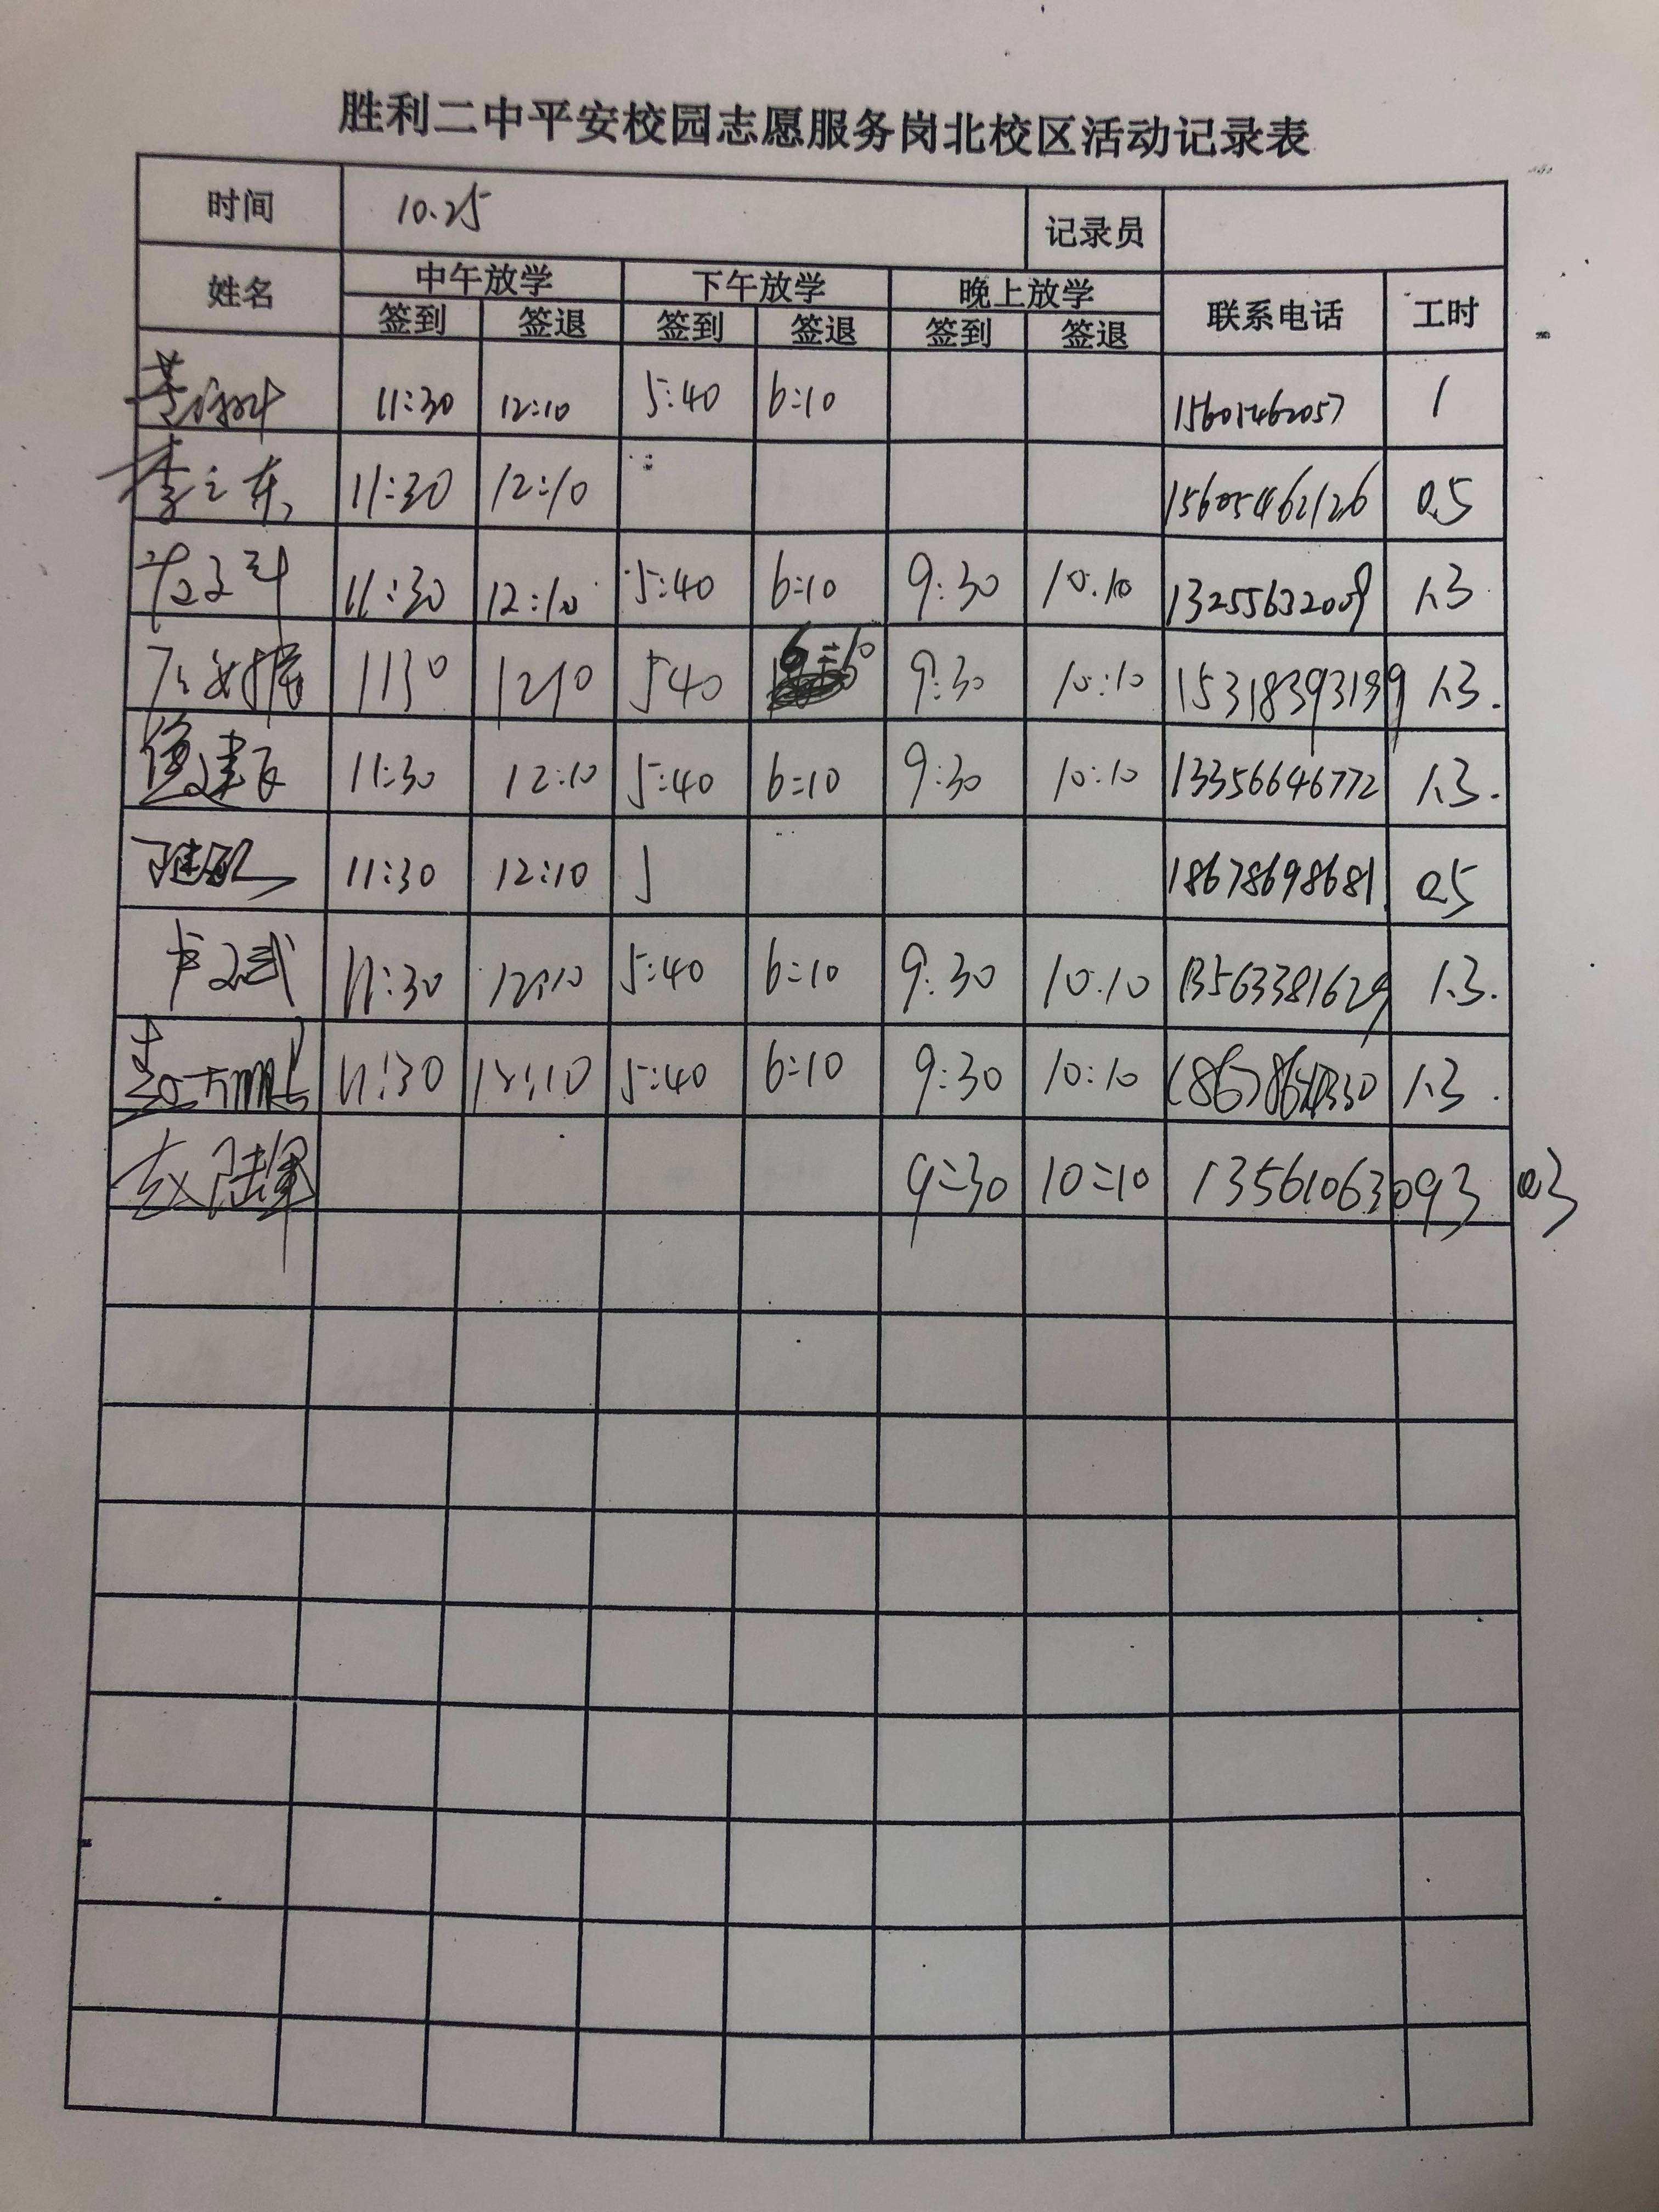 胜利二中平安校园志愿服务岗北校区活动记录表
时间 10.25 记录员
姓名 中午放学 下午放学 晚上放学 联系电话 工时
签到 签退 签到 签退 签到 签退
11:30 12:10 5:40 6:10 15605462057 1
李之东 11:30 12:10 15605462126 0.5
11:30 12:10 5:40 6:10 9:30 10:10 13255632009 1.3
1130 1210 540 6:10 9:30 10:10 15318393199 1.3.
建 11:30 12:10 5:40 6:10 9:30 10:10 13356646772 1.3.
11:30 12:10 18678698681 0.5
卢文武 11:30 12:10 5:40 6:10 9:30 10:10 13563381629 1.3.
11:30 12:10 5:40 6:10 9:30 10:10 1.3.
赵陆军 9:30 10:10 13561063093 0.3